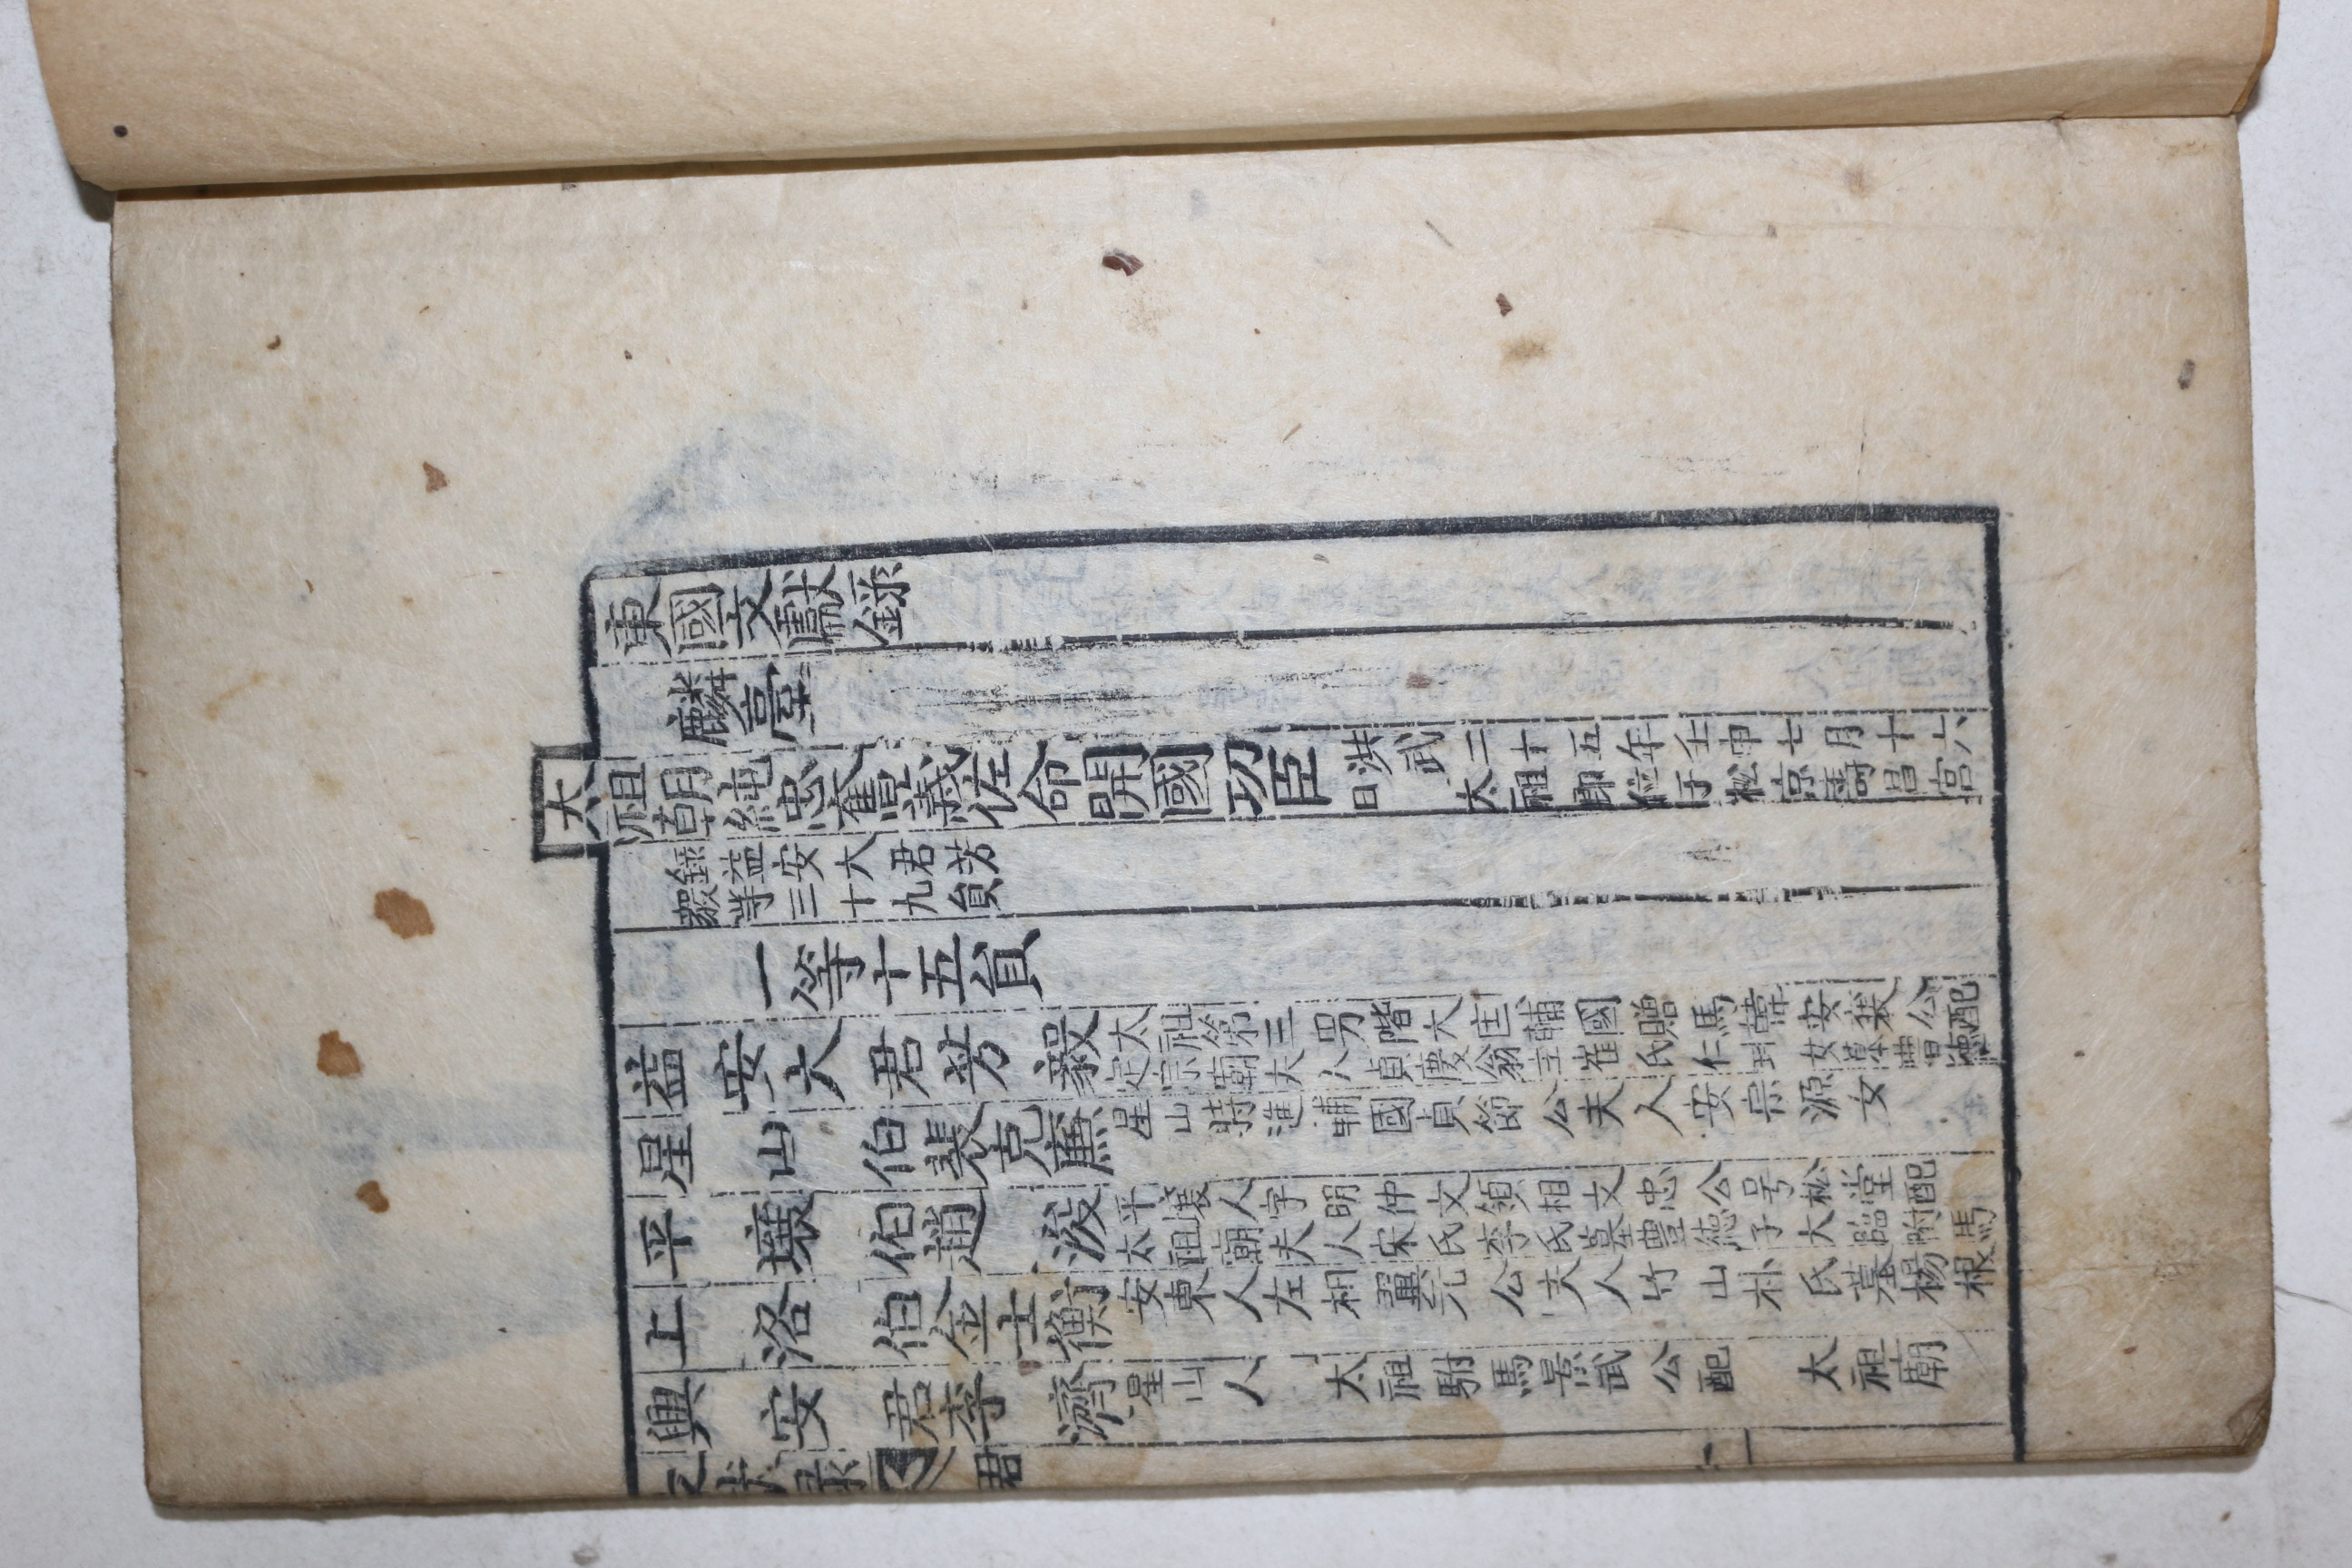 東國文獻錄
麟臺
太祖朝純忠奮義佐命開國功臣
洪武二十五年壬申七月十六
日 太祖即位于松京壽昌宮
錄益安大君芳
毅等三十九員
一等十五員
益安大君芳毅
太祖第三男階大匡輔國贈馬韓安襄公配
定宗廟夫人貞慶翁主崔氏仁㺶女墓豊德
星山伯裴克廉
星山時進輔國貞節公夫人安宗源女
平壤伯趙浚
平壤人字明仲文領相文忠公号松堂配
太祖廟夫人宋氏李氏墓豊德子大臨附馬
上洛伯金士衡
安東人左相翼元公夫人竹山朴氏墓楊根
興安君李濟
星山人 太祖駙馬景武公配 太祖廟
文獻錄 君 一